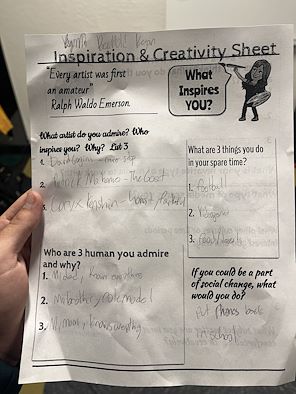 Inspiration & Creativity Sheet
"Every artist was first
an amateur"
Ralph Waldo Emerson
What
Inspires
YOU?
What artist do you admire? Who
inspires you? Why? List 3
1.
2. Patrick Mahomes - The Goat
3.
What are 3 things you do
in your spare time?
1. football
2.
3.
Who are 3 human you admire
and why?
1. My dad, knows everything
2. My brother, role model
3. My mom, knows everything
If you could be a part
of social change, what
would you do?
Put Phones back
in school